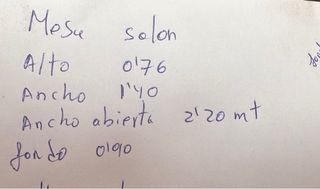 Mesa salon
Alto 0'76
Ancho 1'40
Ancho abierta 2'20 mt
fondo 0'90